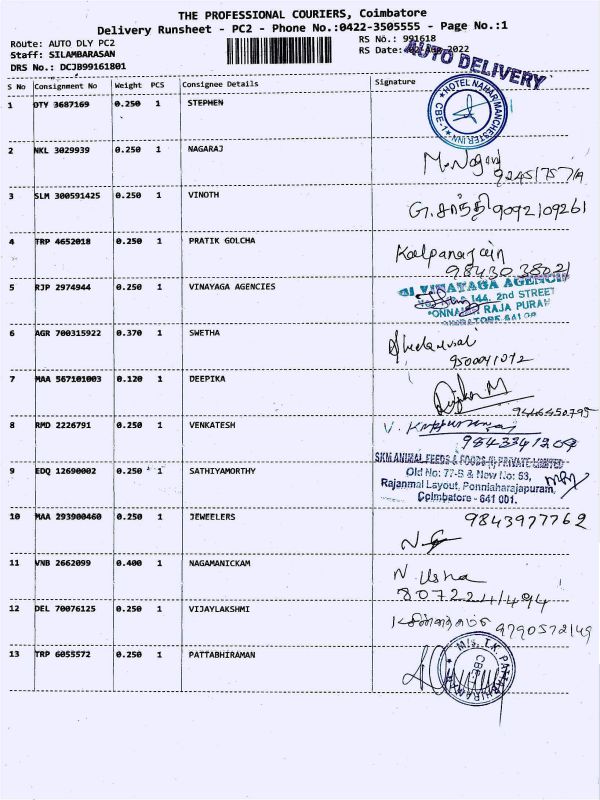 THE PROFESSIONAL COURIERS, Coimbatore
Delivery Runsheet - PC2 - Phone No.:0422-3505555 - Page No.:1
Route: AUTO DLY PC2
RS No.: 991618
Staff: SILAMBARASAN
RS Date: 2022
DRS No.: DCJB99161801
AUTO DELIVERY
S No Consignment No Weight PCS Consignee Details Signature
1 OTY 3687169 0.250 1 STEPHEN
HOTEL NAHAR MANCHESTER INN
CBE-1
2 NKL 3029939 0.250 1 NAGARAJ
M. Nagaraj
3 SLM 300591425 0.250 1 VINOTH
G. சாந்தி 9092109261
4 TRP 4652018 0.250 1 PRATIK GOLCHA
Kalpanajain
9843038021
5 RJP 2974944 0.250 1 VINAYAGA AGENCIES
VINAYAGA AGENCIES
144, 2nd STREET
RAJA PURAM
6 AGR 700315922 0.370 1 SWETHA
7 MAA 567101003 0.120 1 DEEPIKA
9446450795
8 RMD 2226791 0.250 1 VENKATESH
9 EDQ 12690002 0.250 1 SATHIYAMORTHY
SKM ANIMAL FEEDS & FOODS (I) PRIVATE LIMITED
Old No: 77-B & New No: 53,
Rajanmal Layout, Ponniaharajapuram,
Coimbatore - 641 001.
10 MAA 293900460 0.250 1 JEWEELERS
9843977762
11 VNB 2662099 0.400 1 NAGAMANICKAM
N. Usha
8072241494
12 DEL 70076125 0.250 1 VIJAYLAKSHMI
9790572149
13 TRP 6055572 0.250 1 PATTABHIRAMAN
M/s. T.K. PATTABHIRAMAN
CBE-1